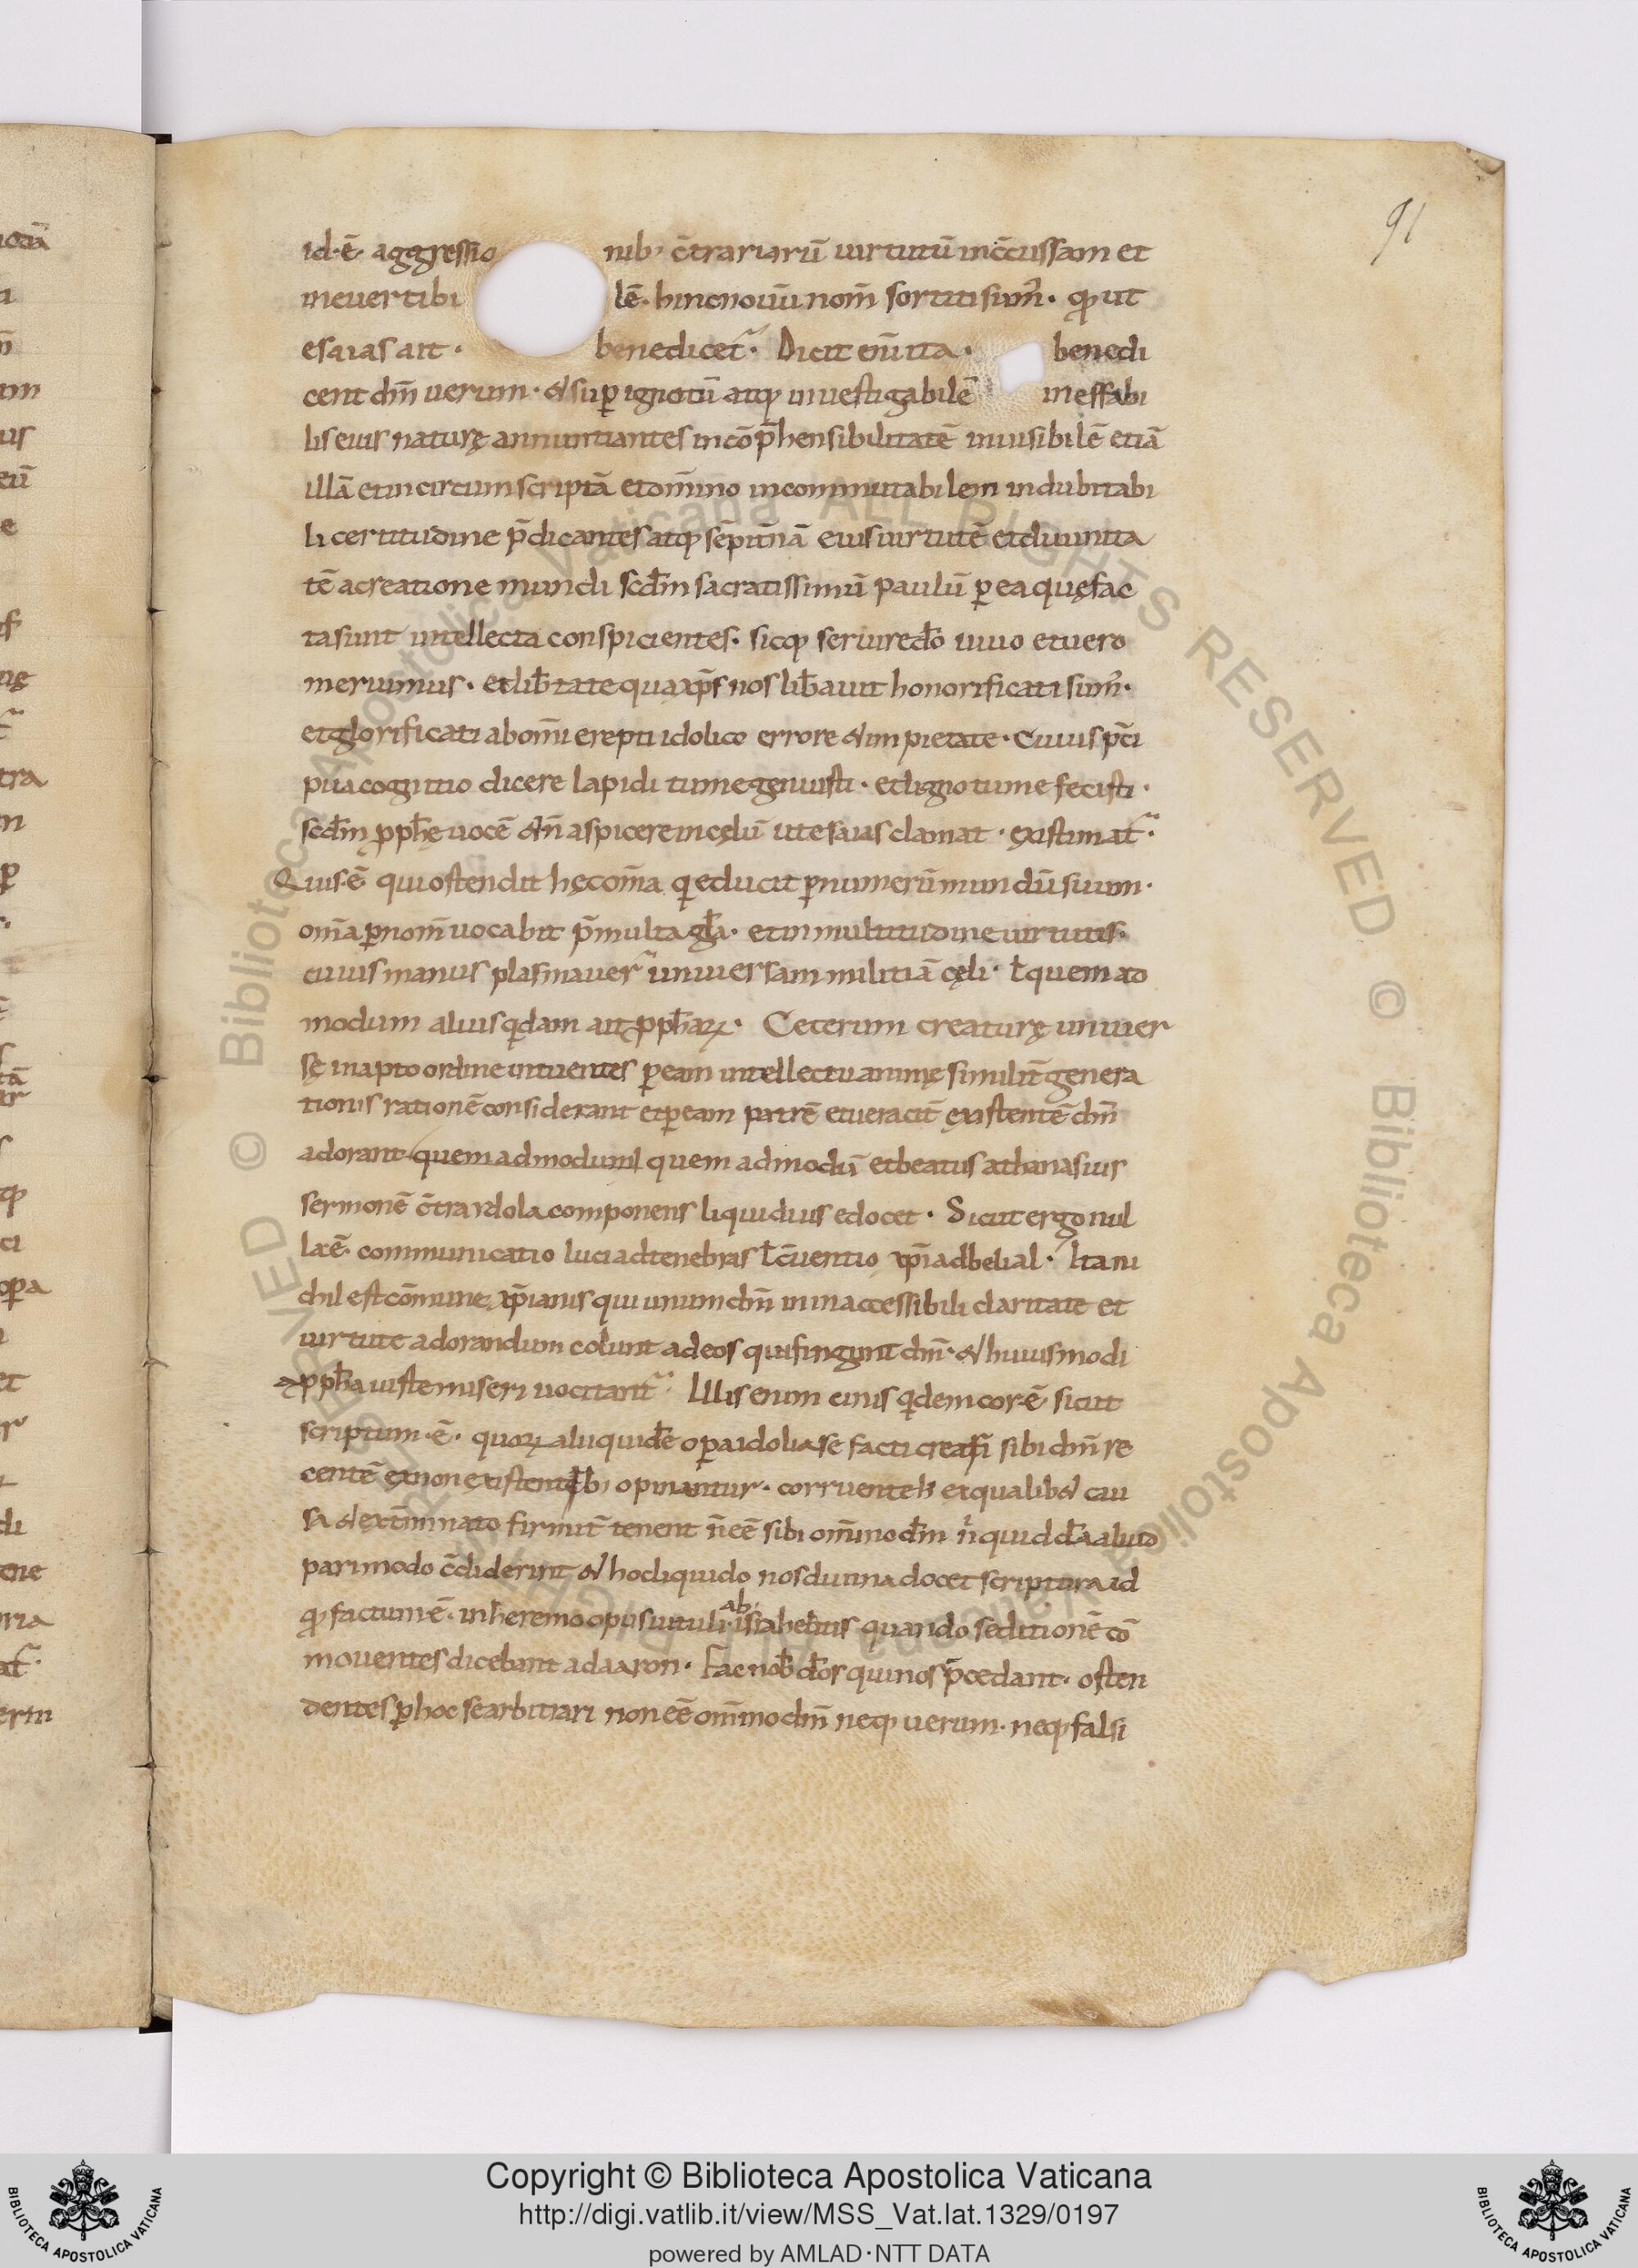 91
id·ē· aggressio nib; c̄trariarū uirtutū inc̄cussam et
ineuertibi lē· hinc nouū nom̄ sortiti sum᷒· qd ut
esaias ait · benedicet᷑· Dicit eni ita · benedi
cent dm̄ uerum · & suꝑ ignotū atq; inuestigabilē ineffabi
lis eius naturę annuntiantes incōp̄hensibilitatē inuisibilē etiā
illā et incircumscriptā et om̄ino incommutabilem indubitabi
li certitudine p̄dicantes atq; sēpit̄nā eius uirtutē et diuinita
tē a creatione mundi scdm̄ sacratissimū paulū ꝑ ea quę fac
ta sunt intellecta conspicientes· sicq; seruire dō uiuo et uero
meruimus · et lib̄tate qua xp̄s nos lib̄auit honorificati sum᷒·
et glorificati ab om̄i erepti idolico errore & impietate · Cuius p̄ci
pua cognitio dicere lapidi tu me genuisti · et ligno tu me fecisti ·
scdm̄ ꝓph̄ę uocē & n̄ aspicere in cęlū ut esaias clamat · ęxistimat᷑·
Quis·ē qui ostendit hęc om̄a qi educit ꝑ numerū mundū suum·
om̄a ꝑ nom̄ uocabit p̄ multa gla· et in multitudine uirtutis·
cuius manus plasmauer᷑ uniuersam militiā cęli· ł quem ad
modum alius qidam ait ꝓph̄aꝝ· Ceterum creaturę uniuer
sę in apto ordine intuentes ꝑ eam intellectu animę similit̄ genera
tionis rationē considerant et ꝑ eam patrē et ueracit̄ ęxistentē dm̄
adorant quem admodum quem admodū et beatus athanasius
sermonē c̄tra idola componens liquidius edocet · Sicut ergo nul
la·ē· communicatio luci ad tenebras ł c̄uentio xp̄i ad belial · Ita ni
chil est cōmune xp̄ianis qui unum dm̄ in inaccessibili claritate et
uirtute adorandum colunt ad eos qui fingunt dm̄· & huiusmodi
ꝓph̄a iuste miseri uocitant᷑· Illis enim cinis qidem cor·ē· sicut
scriptum·ē· quoꝝ aliqui dē oꝑa idolia se facti sibi dm̄ re
centē ex non opinantur· corruentes et qualib& cau
sa & ext̄minato firmit̄ tenent n̄ eē sibi om̄ino dm̄ n̄ quid d̄ aliud
pari modo c̄diderint & hoc liquido nos diuina docet scriptura id
qd factum·ē· in heremo opus uituli· ab israhelitis quando seditionē cō
mouentes dicebant ad aaron· Fac nob̄ dos qui nos p̄cedant· osten
dentes ꝑ hoc se arbitrari non eē om̄ino dm̄ neq; uerum· neq; falsi
Copyright © Biblioteca Apostolica Vaticana
http://digi.vatlib.it/view/MSS_Vat.lat.1329/0197
powered by AMLAD·NTT DATA